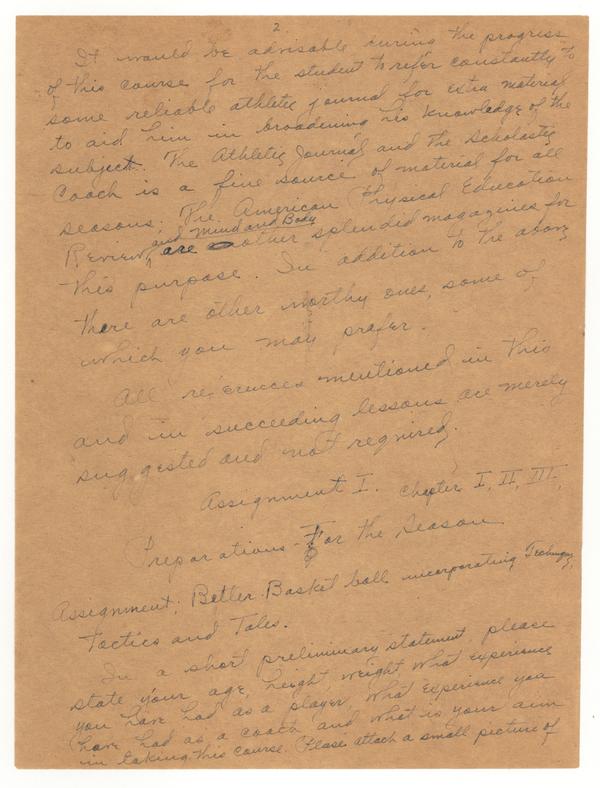 2
It would be advisable during the progress
of this course for the student to refer constantly to
some reliable athletic journal for extra material
to aid him in broadening his knowledge of the
subject. The Athletic Journal and the Scholastic
Coach is a fine source of material for all
seasons; The American Physical Education
Review, and Mind and Body are other splendid magazines for
this purpose. In addition to the above
there are other worthy ones, some of
which you may prefer.
All references mentioned in this
and in succeeding lessons are merely
suggested and not required.
Assignment I. Chapter I, II, III,
Preparations - For the Season
Assignment; Better Basket ball incorporating Technique,
Tactics and Tales.
In a short preliminary statement, please
state your age, height, weight what experience
you have had as a player, what experience you
have had as a coach and what is your aim
in taking this course. Please attach a small picture of